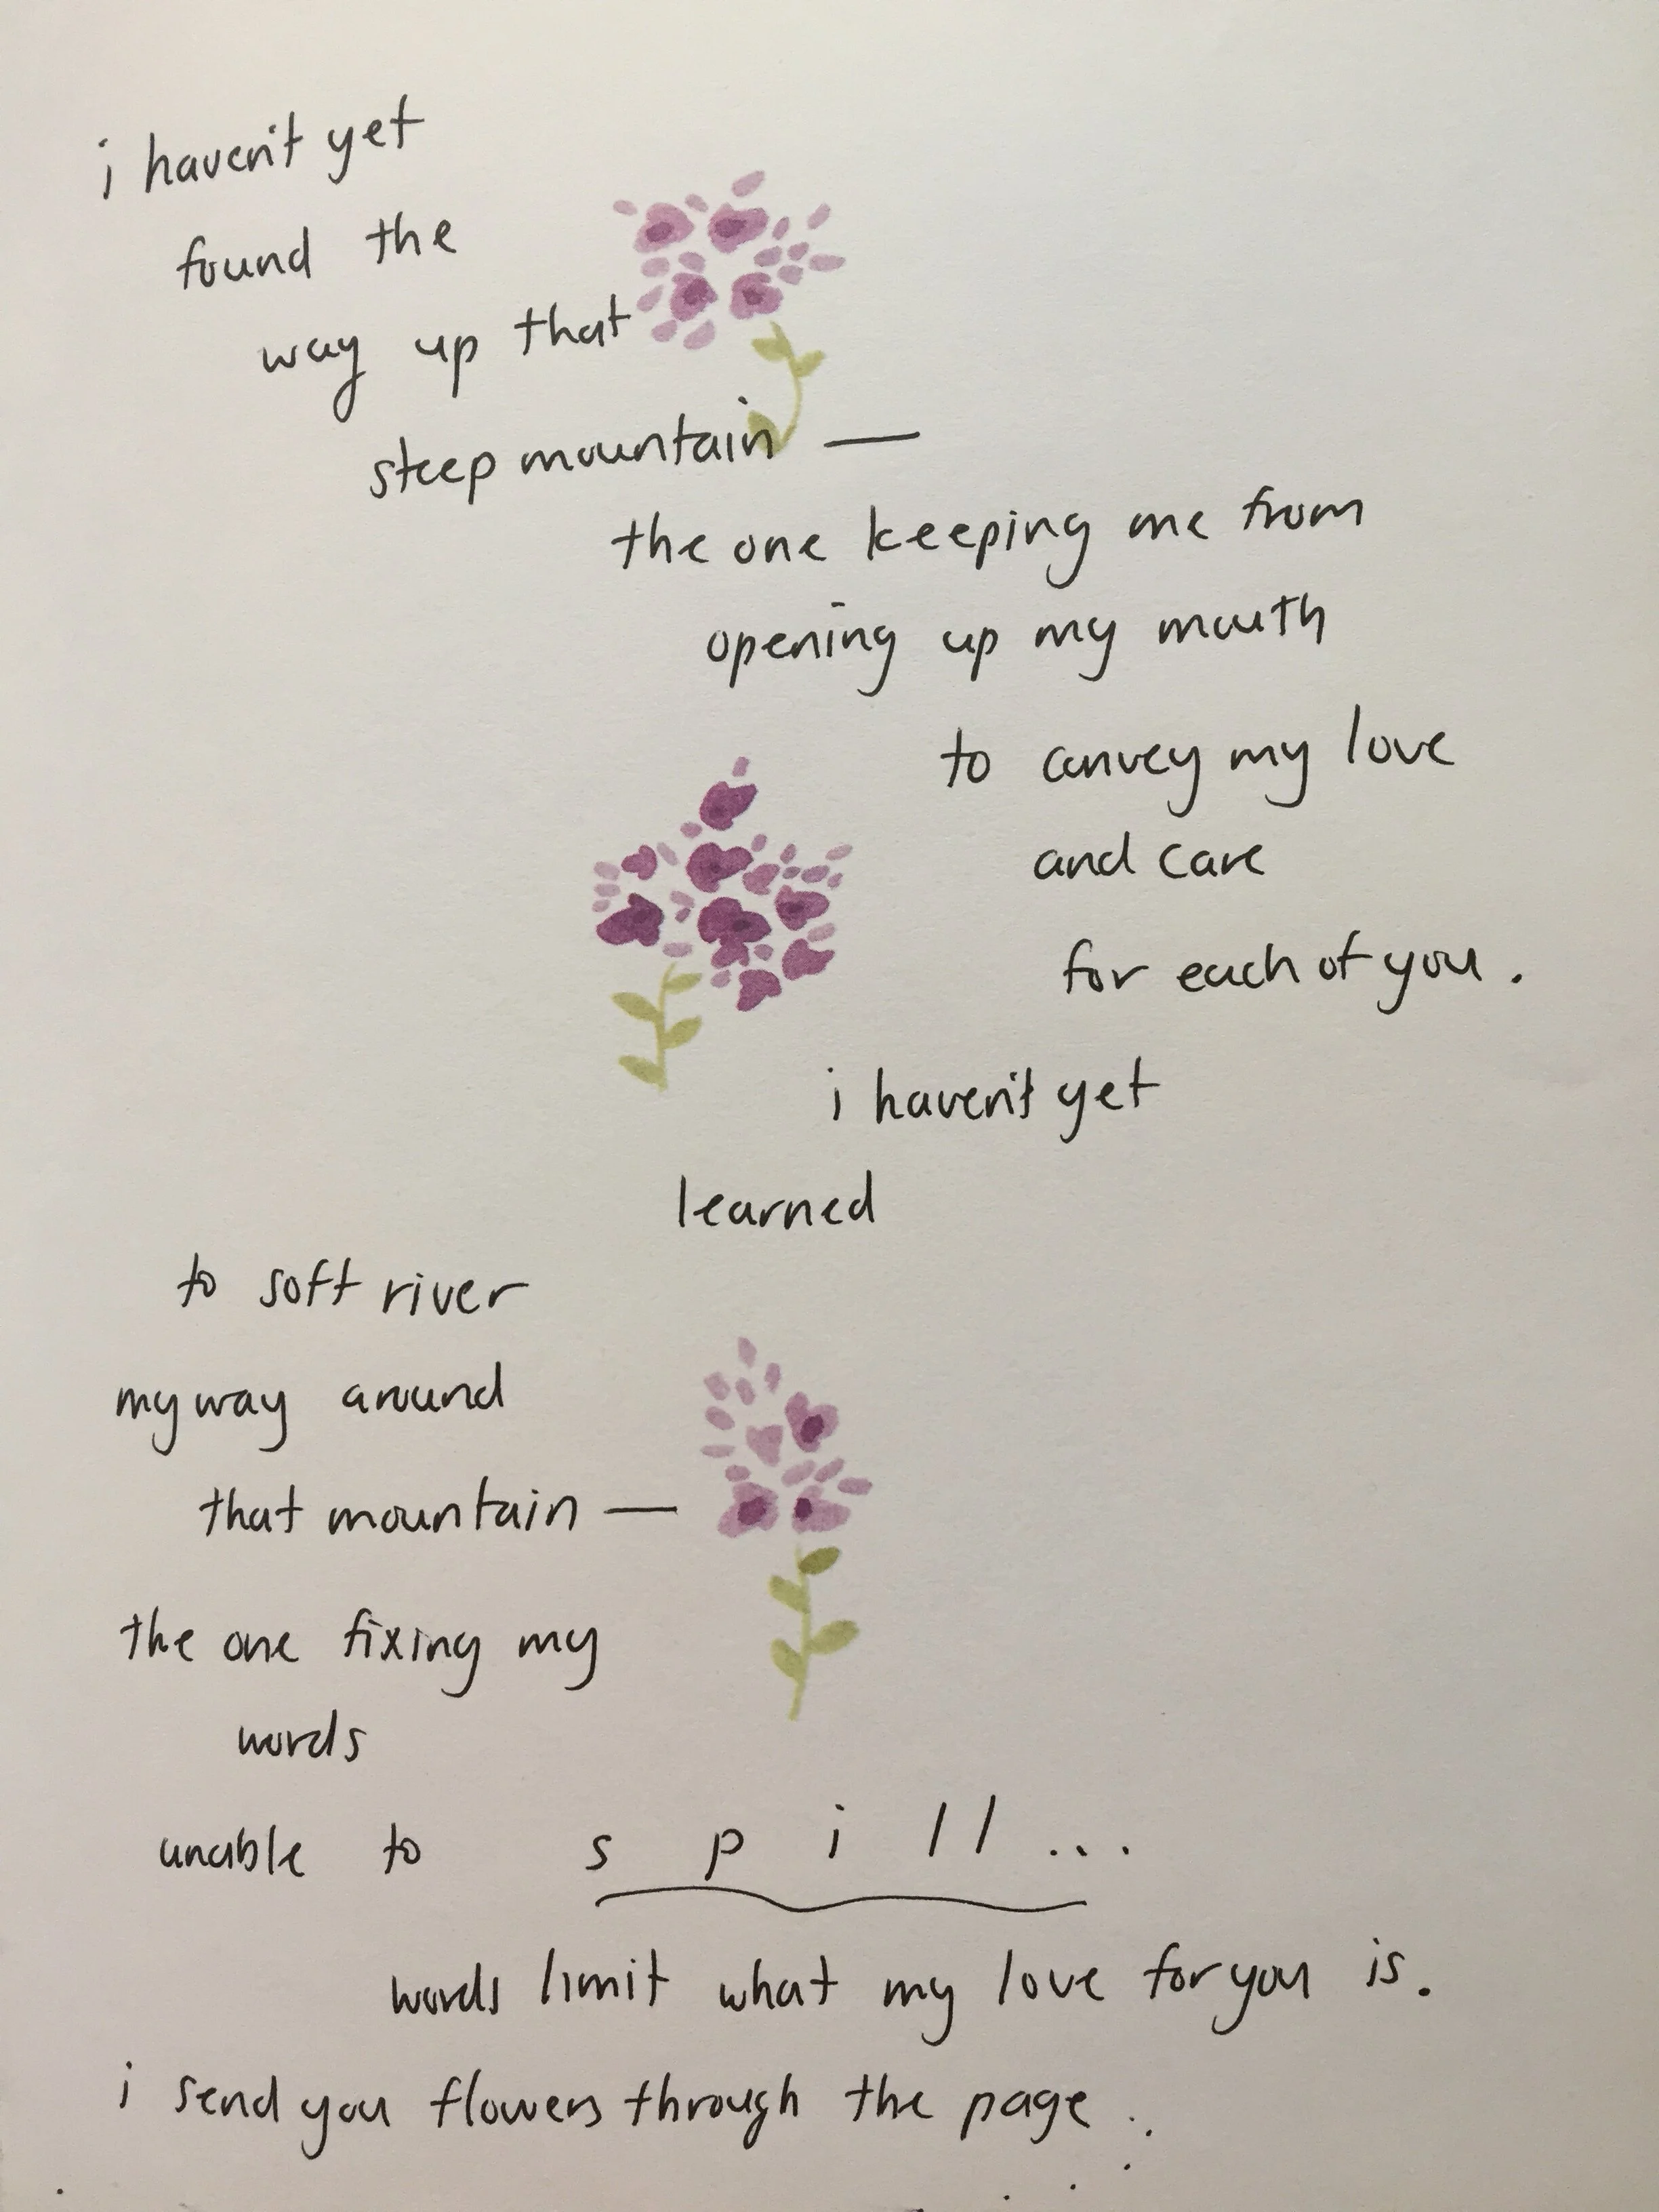 i haven't yet
found the
way up that
steep mountain —
the one keeping me from
opening up my mouth
to convey my love
and care
for each of you.
i haven't yet
learned
to soft river
my way around
that mountain —
the one fixing my
words
unable to s p i l l ...
words limit what my love for you is.
i send you flowers through the page...